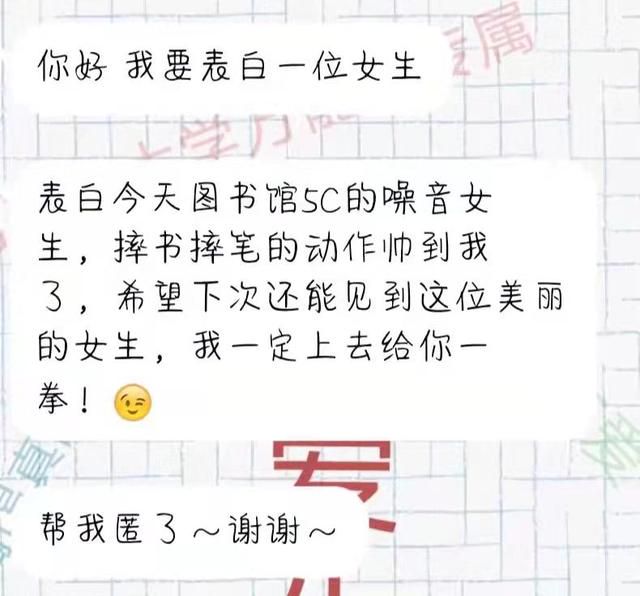 你好 我要表白一位女生
表白今天图书馆5C的噪音女
生，摔书摔笔的动作帅到我
了，希望下次还能见到这位美丽
的女生，我一定上去给你一
拳！😉
帮我匿了～谢谢～